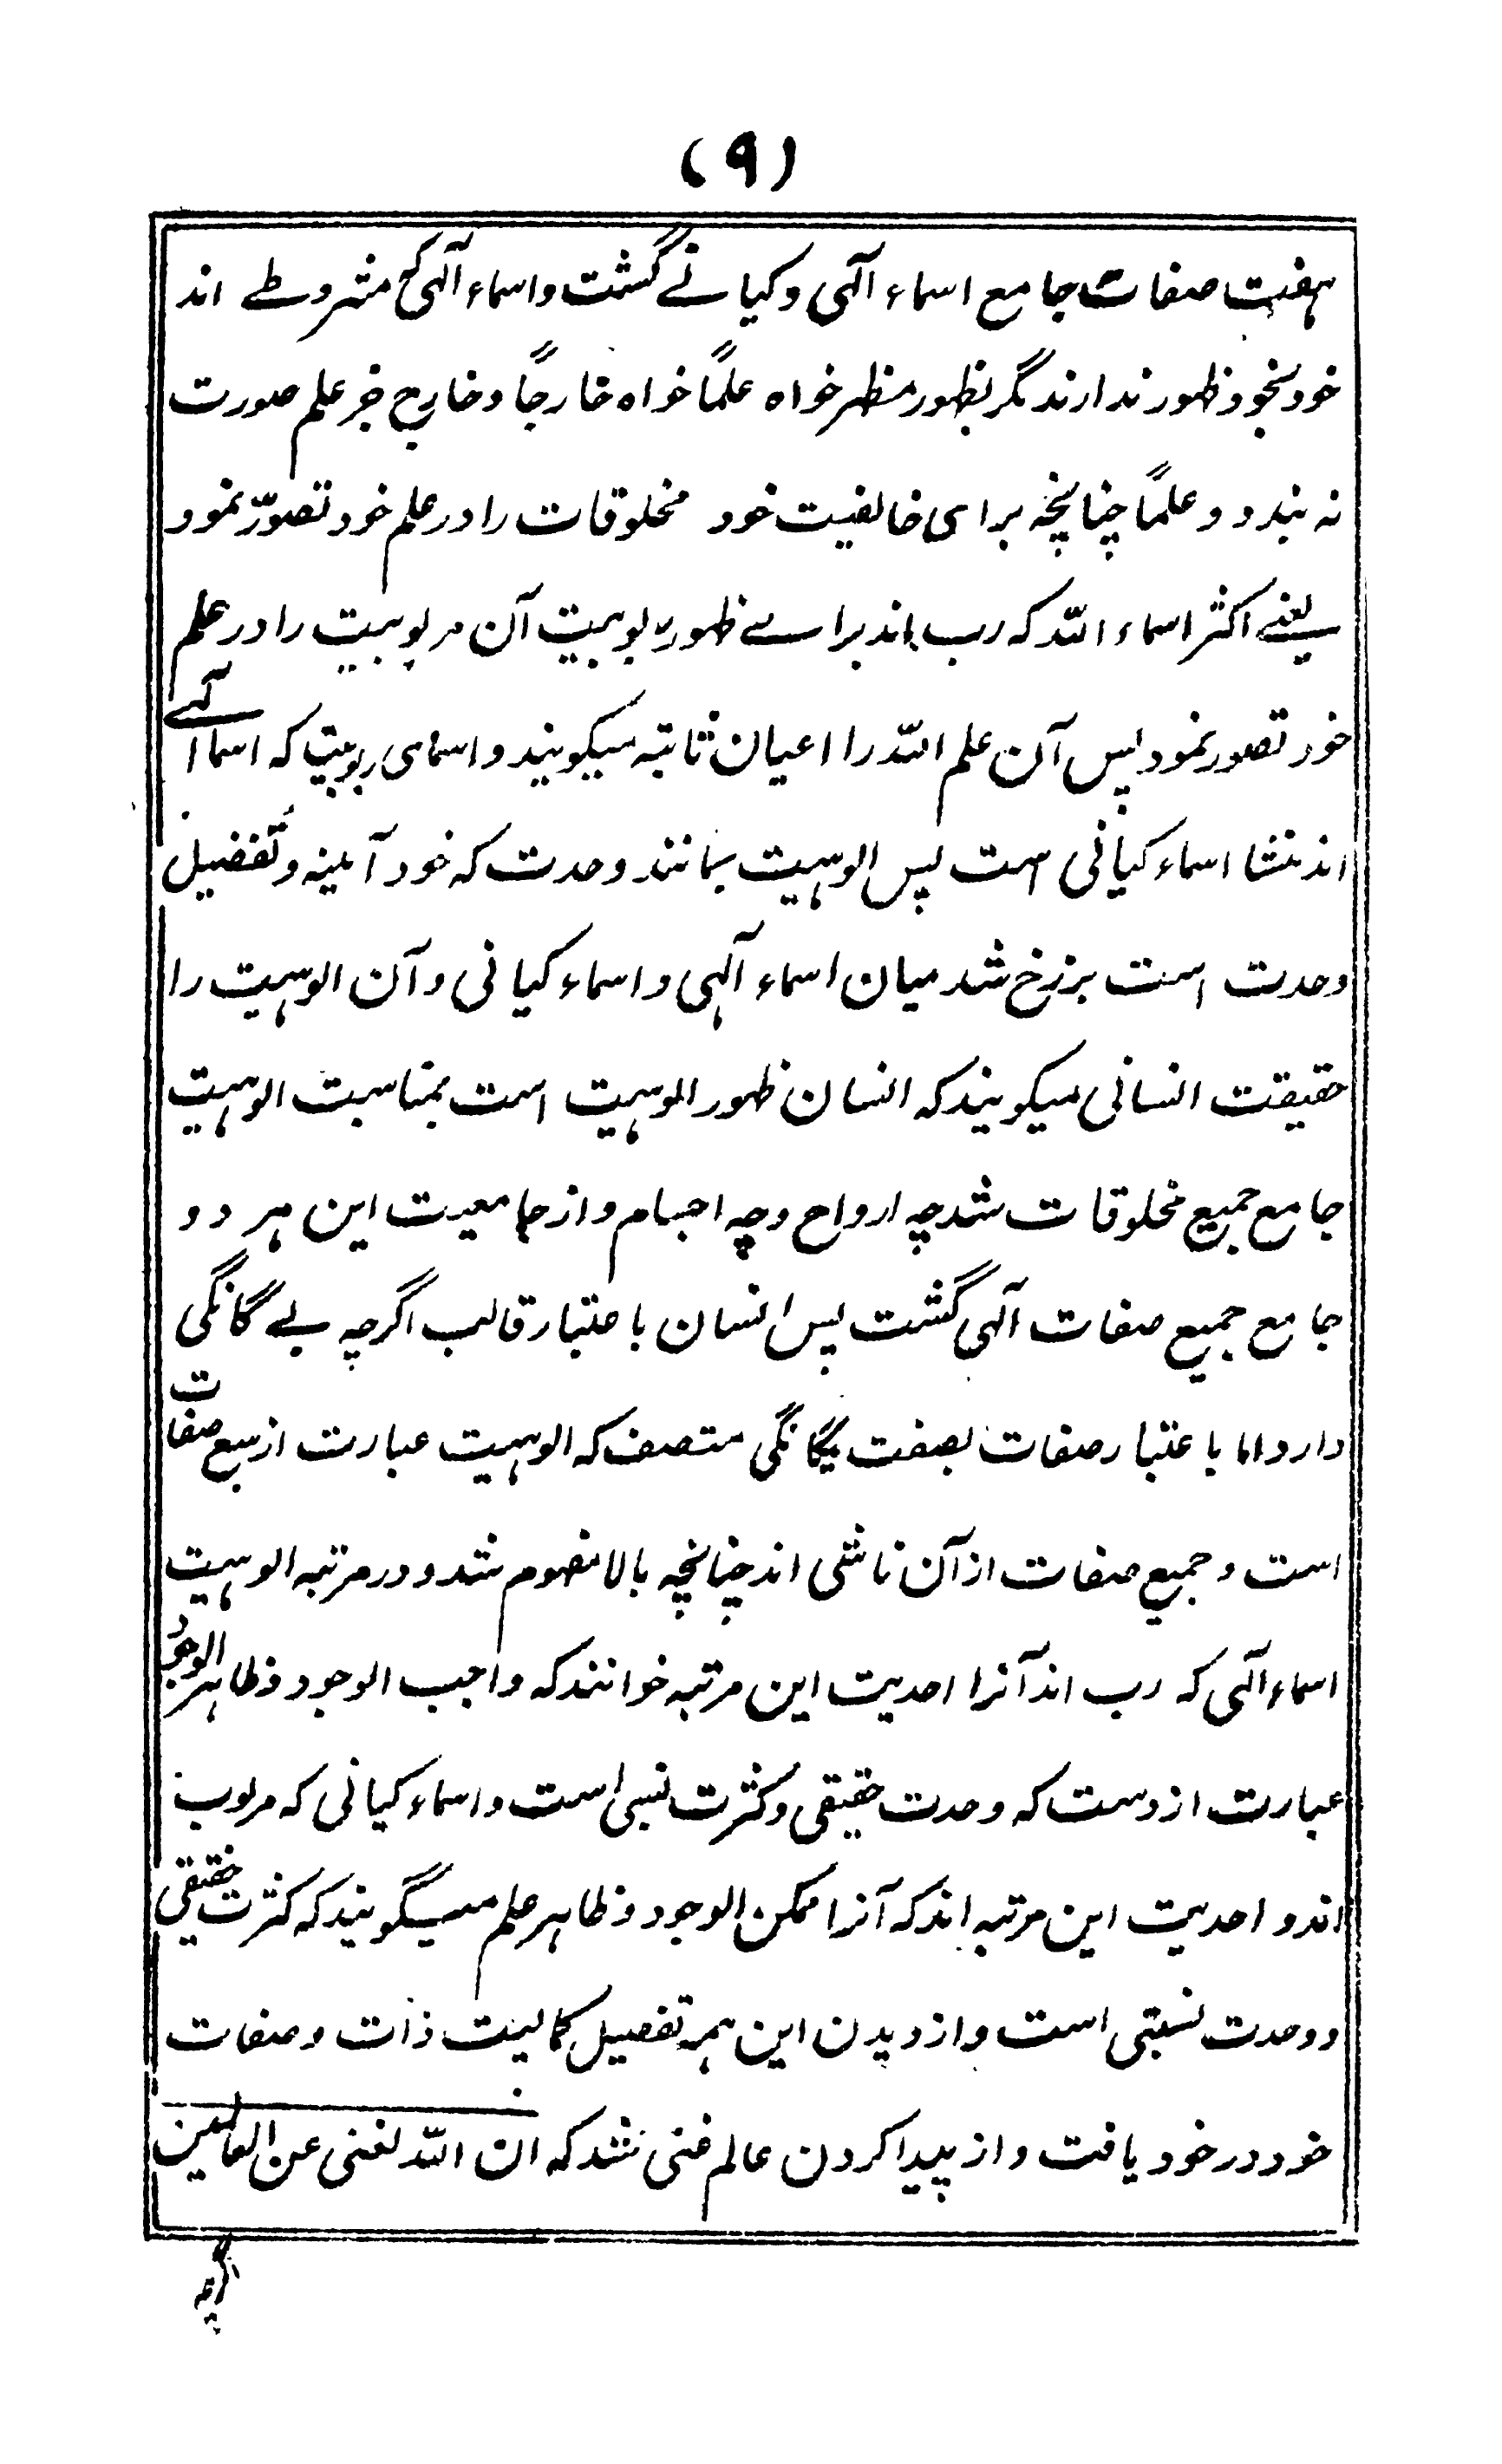 (۹)
ہفت صفات جامع اسماء آلہی وکیانے گشت واسماء آلہی کہ مشروطے اند
خود بخود ظہور ندارند مگر بظہور مظہر خواہ علمًا خواہ خارجًا وخارج جز علم صورت
نہ بندد و علمًا چنانچہ برای خالقیت خود مخلوقات را در علم خود تصوّر نمود
یعنے اکثر اسماء اللہ کہ رب اند براے ظہور ربوبیت آن مربوبیت را در علم
خود تصور نمود پس آن علم اللہ را اعیان ثابتہ میگویند واسمای ربوبیت کہ اسما الٓہے
اند منشا اسماء کیانی است پس الوہیت بمانند وحدت کہ خود آئینہ و تفضیل
وحدت است برزخ شد میان اسماء آلہی واسماء کیانی وآن الوہیت را
حقیقت انسانی میگویند کہ انسان ظہور الوہیت است بمناسبت الوہیت
جامع جمیع مخلوقات شد چہ ارواح وچہ اجسام واز جامعیت این ہر دو
جامع جمیع صفات آلہی گشت پس انسان باعتبار قالب اگرچہ بے گانگی
دارد اما باعتبار صفات بصفت یگانگی متصف کہ الوہیت عبارت از سبع صفات
است وجمیع صفات ازآن ناشی اند چنانچہ بالا مفہوم شد ودر مرتبہ الوہیت
اسماء آلہی کہ رب اند آنرا احدیت این مرتبہ خوانند کہ واجب الوجود وظاہر الوجود
عبارت ازوست کہ وحدت حقیقی وکثرت نسبی است واسماء کیانی کہ مربوب
اند واحدیت این مرتبہ اند کہ آنرا ممکن الوجود وظاہر علم میگویند کہ کثرت حقیقی
ووحدت نسبتی است واز دیدن این ہمہ تفصیل کمالیت ذات وصفات
خود در خود یافت واز پیدا کردن عالم غنی شد کہ ان اللہ لغنی عن العالمین